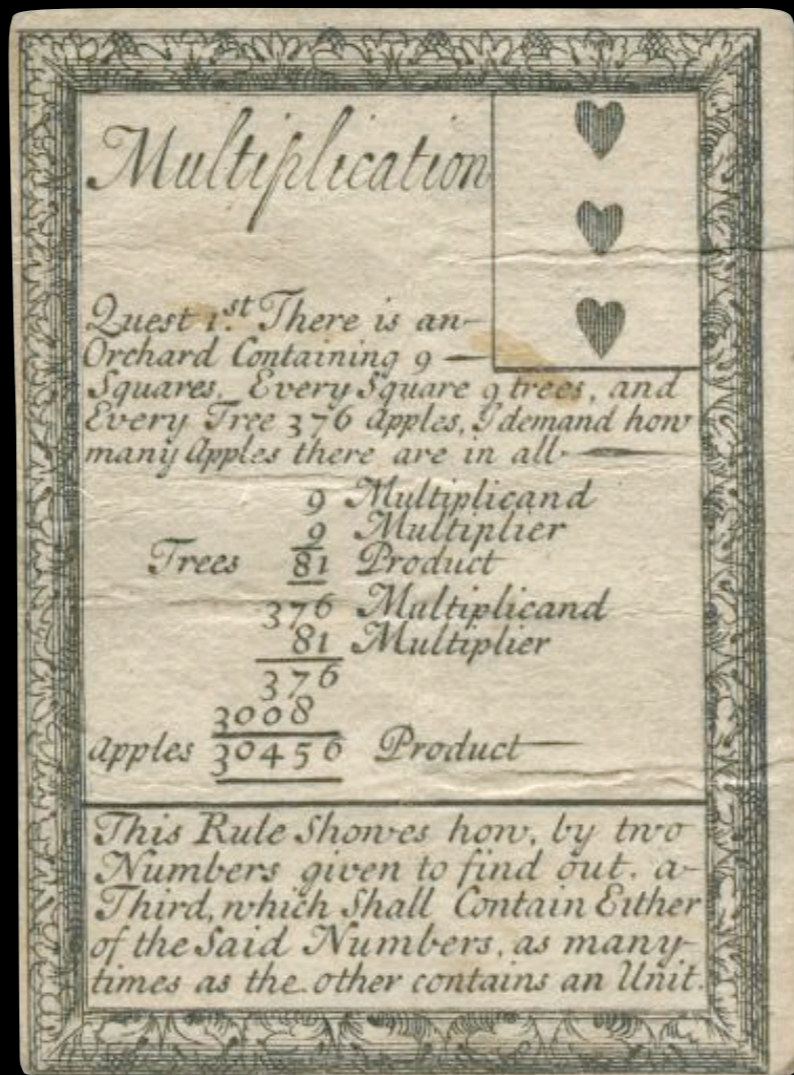 Multiplication
Quest 1.st There is an
Orchard Containing 9
Squares, Every Square 9 trees, and
Every Tree 376 Apples, I demand how
many Apples there are in all
9 Multiplicand
9 Multiplier
Trees 81 Product
376 Multiplicand
81 Multiplier
376
3008
Apples 30456 Product
This Rule Showes how, by two
Numbers given to find out. a
Third, which Shall Contain Either
of the Said Numbers, as many
times as the other contains an Unit.